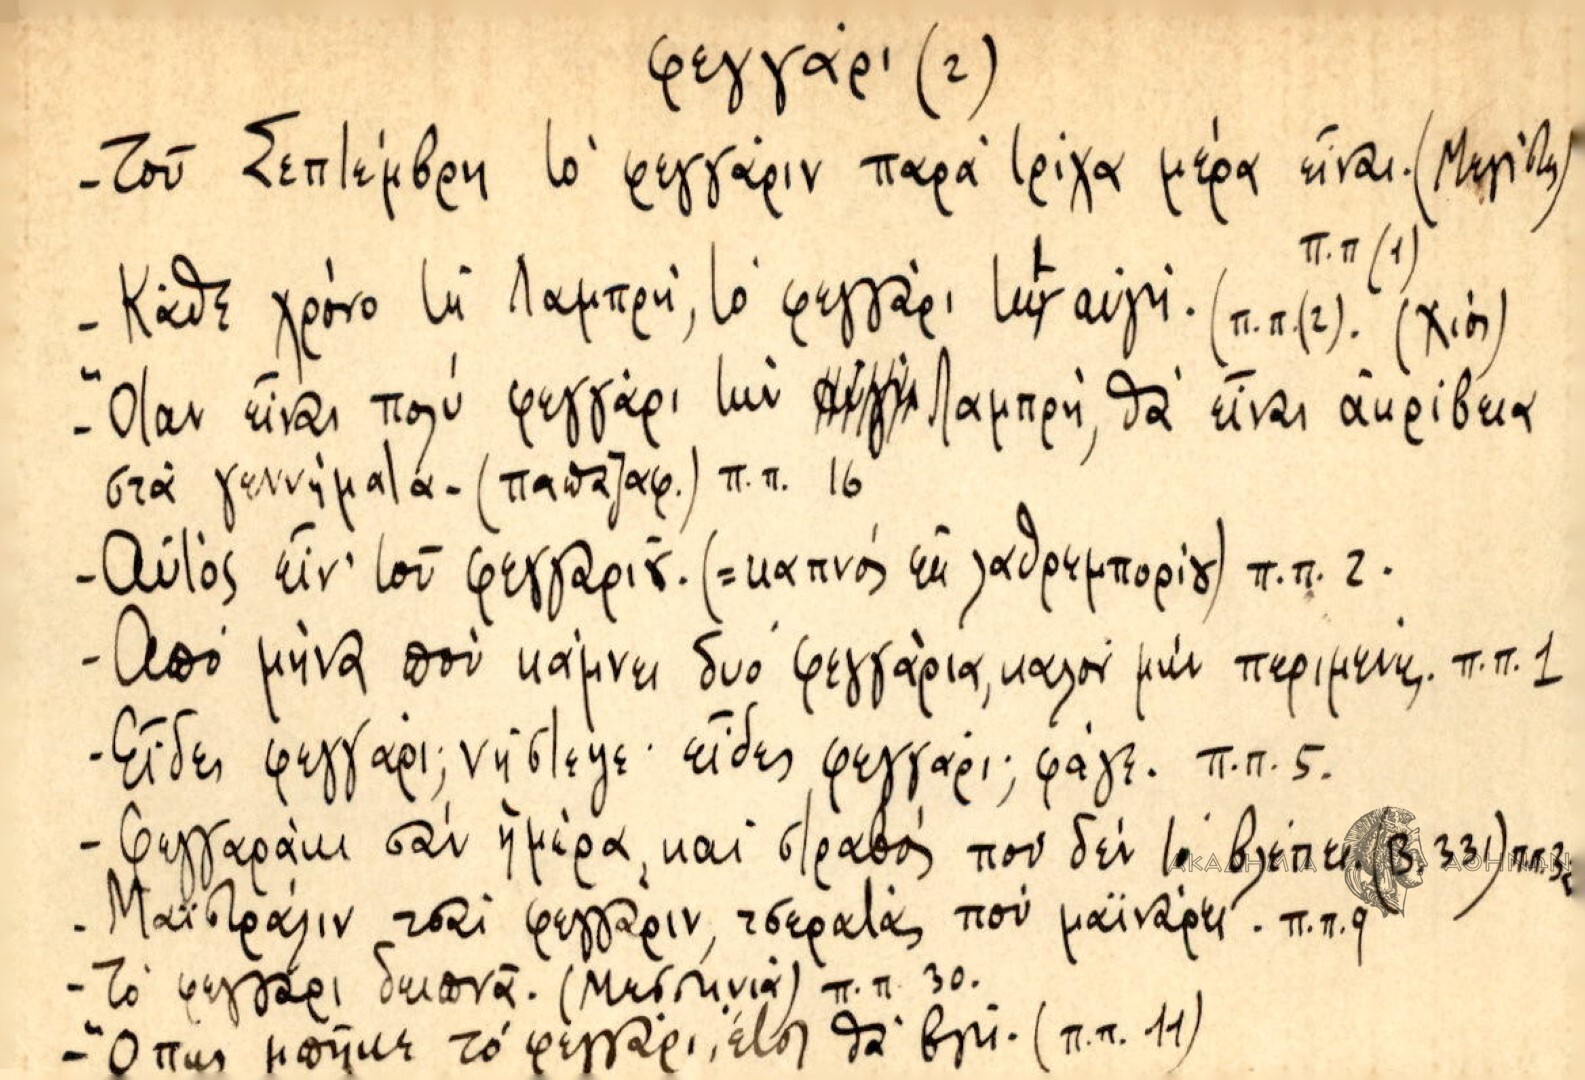 φεγγάρι (2)
- Τοῦ Σεπτέμβρη τὸ φεγγάριν παρὰ τρίχα μέρα εἶναι. (Μεγίστη)
π.π (1)
- Κάθε χρόνο τὴ Λαμπρή, τὸ φεγγάρι τὴν αὐγή. (π.π.(2). (Χίος)
- Ὅταν εἶναι πολύ φεγγάρι τὴν Λαμπρή, θὰ εἶναι ἀκρίβεια
στὰ γεννήματα - (παπαζαφ.) π.π. 16
- Αὐτὸς εἶν' τοῦ φεγγαριοῦ. (= καπνός ἐκ λαθρεμπορίου) π.π. 2.
- Ἀπό μήνα ποὺ κάμνει δυό φεγγάρια, καλὸν μὴν περιμένῃς. π.π. 1
- Εἶδες φεγγάρι; νήστεψε· εἶδες φεγγάρι; φάγε. π.π. 5.
- Φεγγαράκι σὰν ἡμέρα, καὶ στραβός που δὲν τὸ βλέπει. (Β. 331) π.π.3
- Μαϊστράλιν τσαὶ φεγγάριν, τσερατάς ποὺ μαϊνάρει. π.π. 9
- Τὸ φεγγάρι δειπνᾶ. (Μεσσηνία) π.π. 30.
- Ὅπως μπῆκε τὸ φεγγάρι, ἔτσι θὰ βγῆ. (π.π. 11)
ΑΚΑΔΗΜΙΑ ΑΘΗΝΩΝ